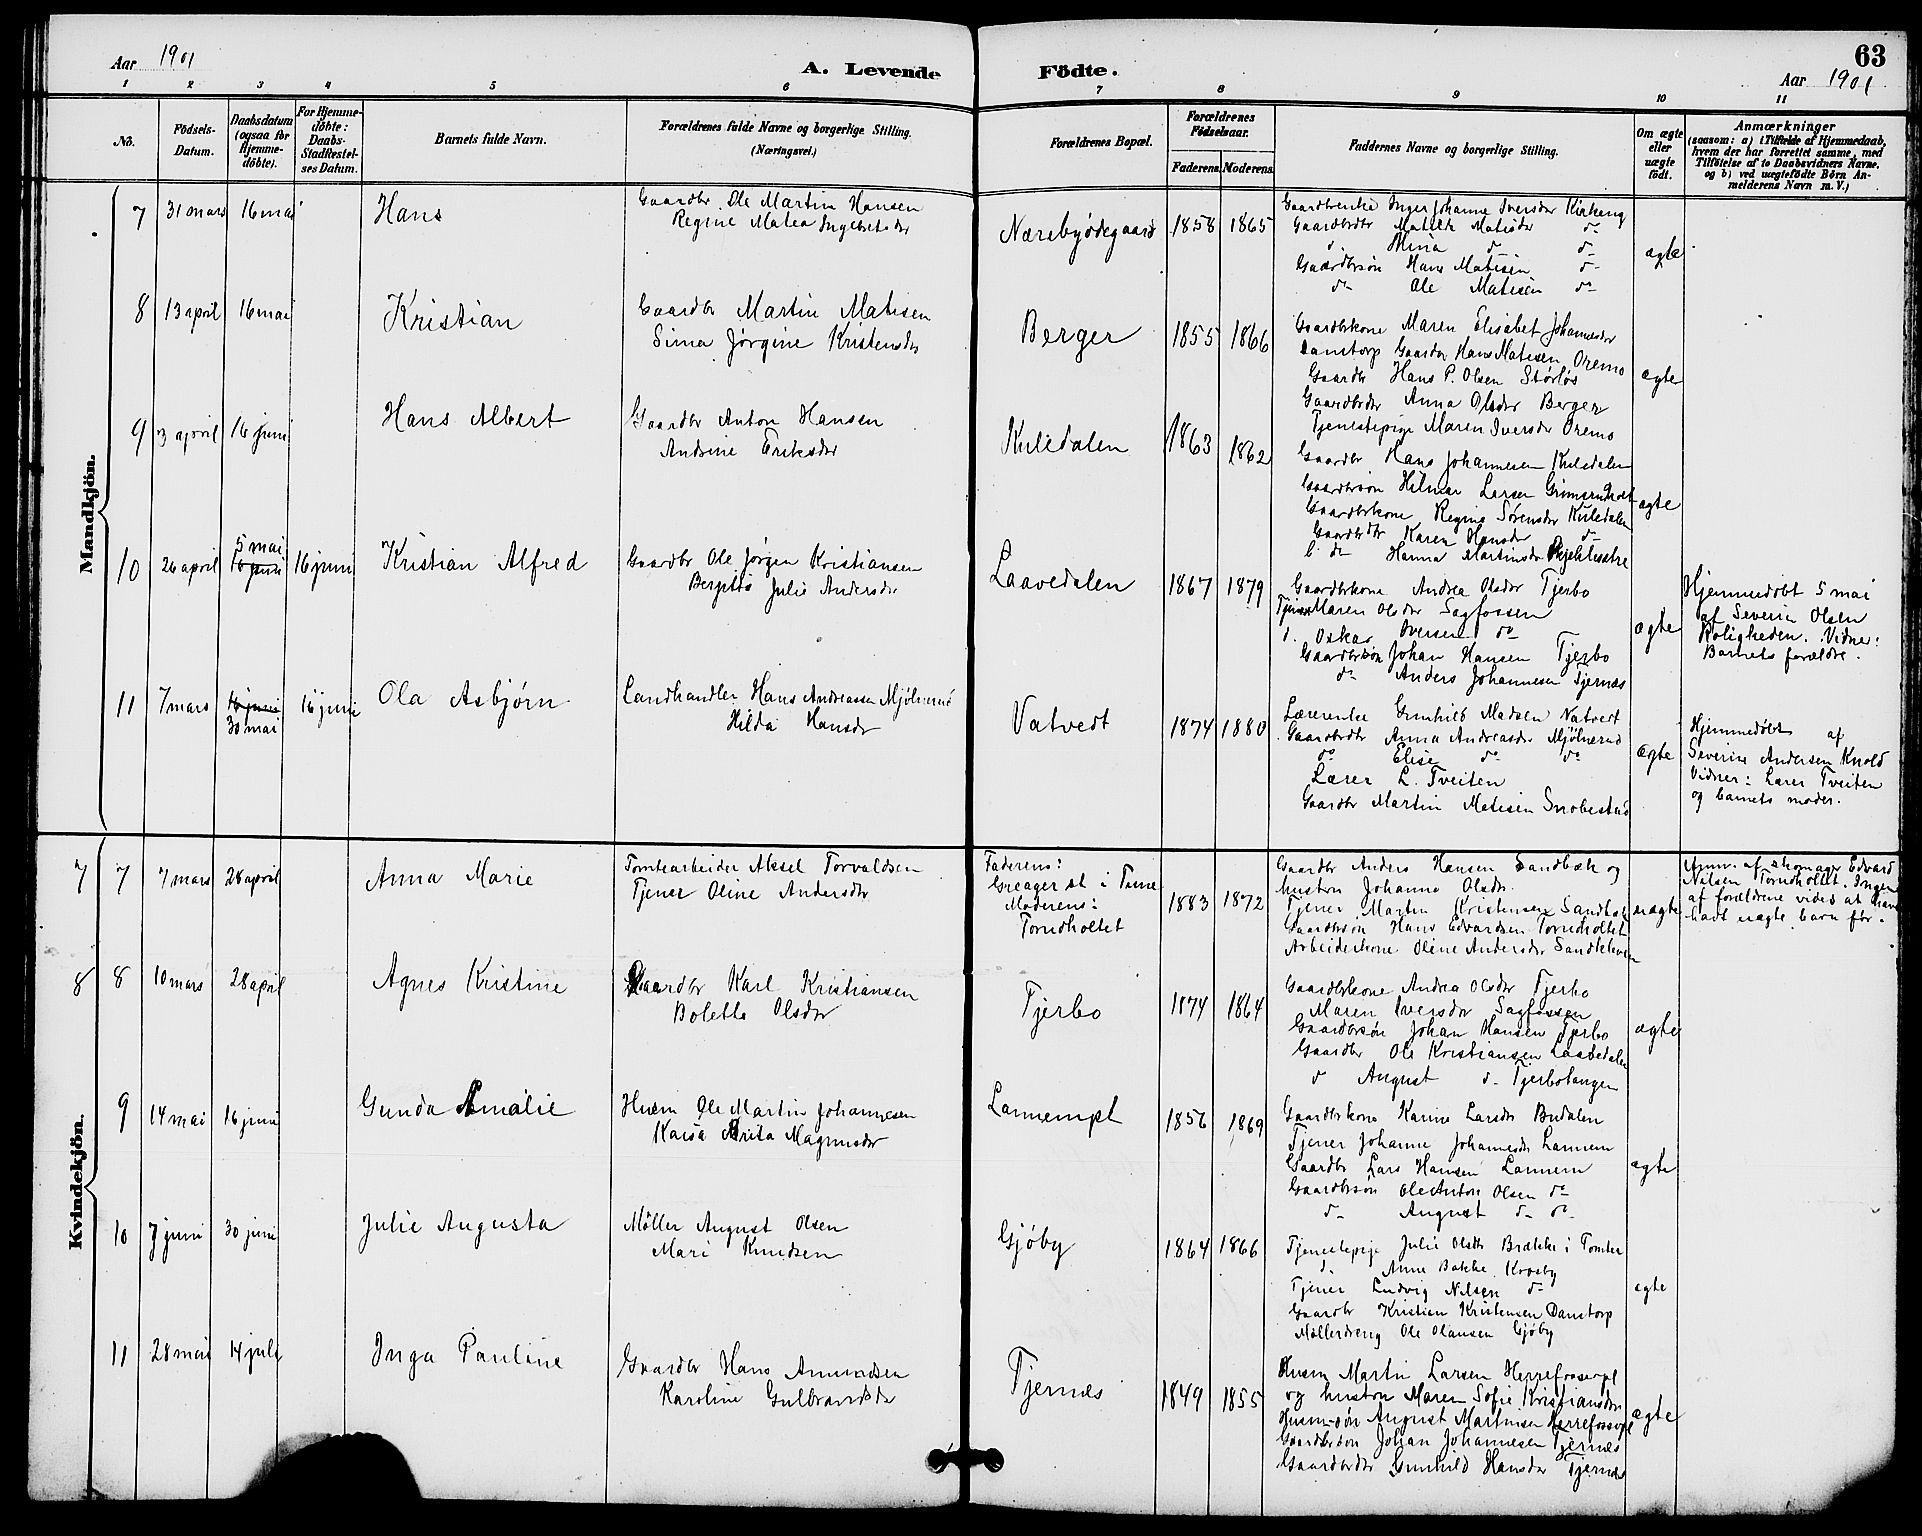 Aar 1901
A. Levende Födte.
63
Aar 1901
1 2 3 4 5 6 7 8 9 10 11
No.
Födsels-Datum.
Daabsdatum (ogsaa for Hjemme-döbte).
For Hjemme-döbte: Daabs-Stadfestel-ses Datum.
Barnets fulde Navn.
Forældrenes fulde Navne og borgerlige Stilling. (Næringsvei.)
Forældrenes Bopæl.
Forældrenes Fødselsaar.
Faderens. Moderens.
Faddernes Navne og borgerlige Stilling.
Om ægte eller uægte födt.
Anmærkninger
(saasom: a) i Tilfælde af Hjemmedaab,
hvem der har forrettet samme, med
Tilföielse af to Daabsvidners Navne.
og b) ved uægtefödte Börn An-
melderens Navn m. V.)
Mandkjön.
7 31 mars 16 mai Hans
Gaardbr. Ole Martin Hansen
Regine Matea Ingebretsdr
Nærebyødegaard 1858 1865
Gaardbrenke Inger Johanne Iversdr Kirkeng
Gaardbrdtr Matilde Matisdr do
d. Mina d. d.
Gaardbrsøn Hans Matisen d.
do Ole Matisen do
ægte
8 13 april 16 mai Kristian
Gaardbr Martin Matisen
Sina Jørgine Kristensdr
Berger 1855 1866
Gaardbrkone Maren Elisabet Johannesdr
Danstorp Gaardbr Hans Matisen Oremo
Gaardbr Hans P. Olsen Størløs
Gaardbrdtr Anna Olsdr Berger
Tjenestepige Maren Iversdr Oremo
ægte
9 3 april 16 juni Hans Albert
Gaardbr Anton Hansen
Andrine Eriksdr
Kuledalen 1863 1862
Gaardbr Hans Johannesen Kuledalen
Gaardbrsøn Hilmar Larsen
Gaardbrkone Regine Sørensdr Kuledalen
Gaardbrdtr Karen Hansdr do
do Hanna Martinsdr
ægte
10 26 april 5 mai 16 juni 16 juni Kristian Alfred
Gaardbr Ole Jørgen Kristiansen
Julie Andersdr
Laavedalen 1867 1879
Gaardbrkone Andrea Olsdr Tjerbo
Tjener Maren Olsdr Sagfossen
d. Oskar Iversen do
Gaardbrsøn Johan Hansen Tjerbo
do Anders Johannesen Tjernæs
ægte
Hjemmedøbt 5 mai
af Severin Olsen
Roligheden. Vidner:
Barnets forældre.
11 7 mars 16 juni 30 mai 16 juni Ola Asbjørn
Landhandler Hans Andreassen Mjølnerud
Hilda Hansdr
Vatvedt 1874 1880
Lærerenke Gunhild Madsen Vatvedt
Gaardbrdtr Anna Andreasdr Mjølnerud
do Elise do do
Lærer L. Tveiten
Gaardbr Martin Matisen
ægte
Hjemmedøbt af
Severine Andersen Knold
Vidner: Lærer Tveiten
og barnets moder.
Kvindekjön.
7 7 7 mars 28 april Anna Marie
Tomtearbeider Aksel Torvaldsen
Tjener Oline Andersdr
Faderens:
Greager st i Tune
Moderens:
Torndholtet
1883 1872
Gaardbr Anders Hansen Sandbæk og
hustru Johanne Olsdr.
Tjener Martin Kristensen Sandbæk
Gaardbrsøn Hans Edvardsen Torndholtet
Arbeiderkone Oline Andersdr
uægte
Anm. af skomager Edvard
Nilsen Torndholtet. Ingen
af forældrene vides at have
havt uægte barn før.
8 8 10 mars 28 april Agnes Kristine
Gaardbr Karl Kristiansen
Bolette Olsdr
Tjerbo 1874 1864
Gaardbrkone Andrea Olsdr Tjerbo
Maren Iversdr Sagfossen
Gaardbrsøn Johan Hansen Tjerbo
Gaardbr Ole Kristiansen Laavedalen
d August d. Tjerbotangen
ægte
9 14 mai 16 juni Gunda Amalie
Husm Ole Martin Johannesen
Kaisa Brita Magnusdr
Lannempl 1856 1869
Gaardbrkone Karine Larsdr Budalen
Tjener Johanne Johannesdr Lannem
Gaardbr Lars Hansen Lannem
Gaardbrsøn Ole Anton Olsen do
do August do do
ægte
10 7 juni 30 juni Julie Augusta
Møller August Olsen
Mari Knudsen
Gjøby 1864 1866
Tjenestepige Julie Olsdtr Brække i Tomter
d. Anne Bakke Krosby
Tjener Ludvig Nilsen do
Gaardbr Kristian Kristensen Danstorp
Møllerdreng Ole Olausen Gjøby
ægte
11 28 mai 14 juli Inga Pauline
Gaardbr Hans Amundsen
Karoline Gulbrandsdr
Tjernæs 1849 1855
Husm Martin Larsen Herrefossepl
og hustru Maren Sofie Kristiansdr
Husm-søn August Martinsen Herrefossepl
Gaardbrsøn Johan Johannesen Tjernæs
Gaardbrdtr Gunhild Hansdr Tjernæs
ægte